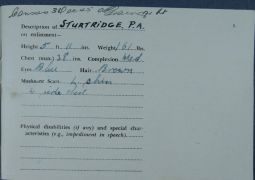 Description of STURTRIDGE, P.A.
on enlistment:—
Height 5 ft. 11 ins. Weight 161 lbs.
Chest (max.) 38 ins. Complexion Med.
Eyes Blue Hair Brown
Marks or Scars L. Shin
Physical disabilities (if any) and special char-
acteristics (e.g., impediment in speech)